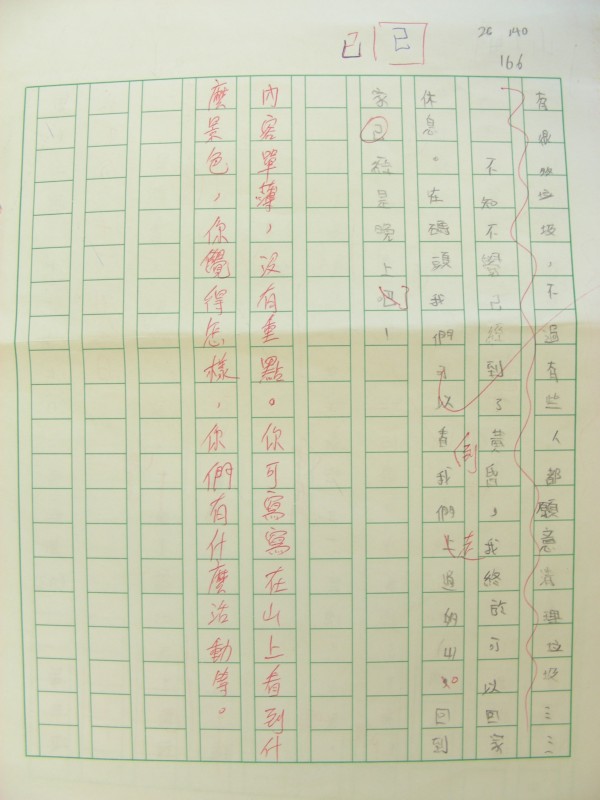 已 已
26 140
166
有很多垃圾，不過有些人都願意清理垃圾……
不知不覺已經到了黃昏，我終於可以回家
休息。在碼頭我們可以看到我們走過的山。回到
家已經是晚上了！
內容單薄，沒有重點。你可寫寫在山上看到什
麼景色，你覺得怎樣，你們有什麼活動等。